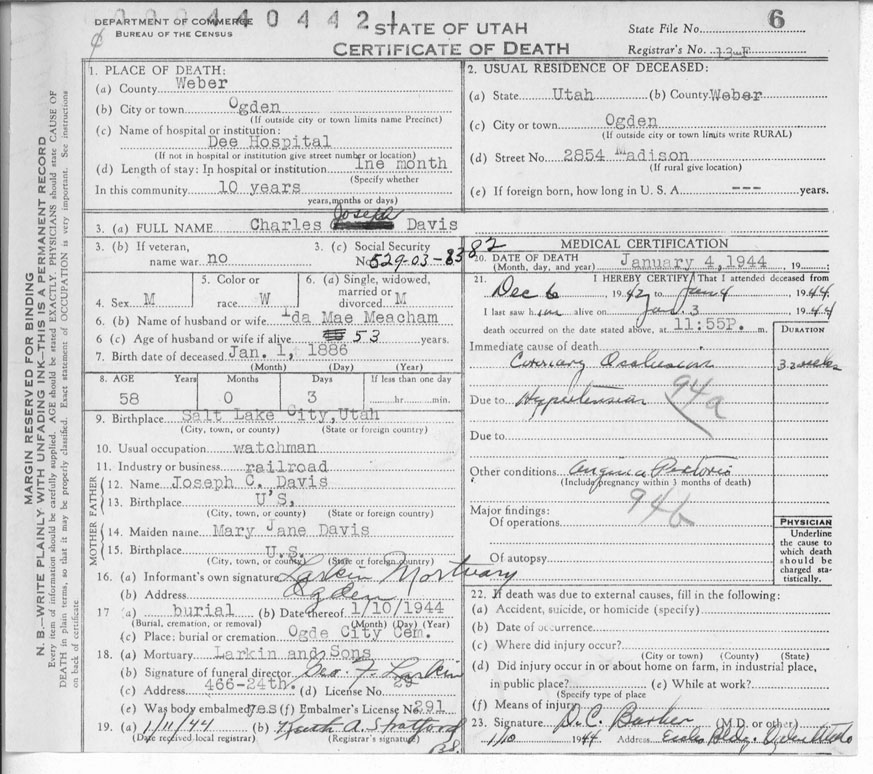 0004404421
DEPARTMENT OF COMMERCE
BUREAU OF THE CENSUS
STATE OF UTAH
CERTIFICATE OF DEATH
State File No. 6
Registrar's No. 13-F
MARGIN RESERVED FOR BINDING
N. B.—WRITE PLAINLY WITH UNFADING INK—THIS IS A PERMANENT RECORD
Every item of information should be carefully supplied. AGE should be stated EXACTLY. PHYSICIANS should state CAUSE OF
DEATH in plain terms, so that it may be properly classified. Exact statement of OCCUPATION is very important. See instructions
on back of certificate
1. PLACE OF DEATH:
(a) County Weber
(b) City or town Ogden
(If outside city or town limits name Precinct)
(c) Name of hospital or institution:
Dee Hospital
(If not in hospital or institution give street number or location)
(d) Length of stay: In hospital or institution Ine month
(Specify whether
In this community 10 years
years, months or days)
2. USUAL RESIDENCE OF DECEASED:
(a) State Utah (b) County Weber
(c) City or town Ogden
(If outside city or town limits write RURAL)
(d) Street No. 2854 Madison
(If rural give location)
(e) If foreign born, how long in U. S. A. --- years.
3. (a) FULL NAME Charles Joseph Davis
3. (b) If veteran,
name war no
3. (c) Social Security
No. 529-03-8382
4. Sex M
5. Color or
race W
6. (a) Single, widowed,
married or
divorced M
6. (b) Name of husband or wife Ida Mae Meacham
6 (c) Age of husband or wife if alive 53 years.
7. Birth date of deceased Jan. 1, 1886
(Month) (Day) (Year)
8. AGE Years Months Days If less than one day
58 0 3 hr. min.
9. Birthplace Salt Lake City, Utah
(City, town, or county) (State or foreign country)
10. Usual occupation watchman
11. Industry or business railroad
FATHER
12. Name Joseph C. Davis
13. Birthplace U'S,
(City, town, or county) (State or foreign country)
MOTHER
14. Maiden name Mary Jane Davis
15. Birthplace U.S.
(City, town, or county) (State or foreign country)
16. (a) Informant's own signature Larkin Mortuary
(b) Address Ogden
17 (a) burial (b) Date thereof 1/10/1944
(Burial, cremation, or removal) (Month) (Day) (Year)
(c) Place: burial or cremation Ogde City Cem.
18. (a) Mortuary Larkin and Sons
(b) Signature of funeral director Geo. F. Larkin
(c) Address 466-24th. (d) License No. 29
(e) Was body embalmed yes (f) Embalmer's License No. 291
19. (a) 1/11/44 (b) Keith A. Stratford
(Date received local registrar) (Registrar's signature)
MEDICAL CERTIFICATION
20. DATE OF DEATH
(Month, day, and year) January 4, 1944 19
21. I HEREBY CERTIFY That I attended deceased from
Dec 6 1942 to Jan 4 1944
I last saw him alive on Jan. 3 1944
death occurred on the date stated above, at 11:55P. m.
DURATION
Immediate cause of death
Coronary Occlusion 3 weeks
Due to Hypertension 94a
Due to
Other conditions Angina Pectoris
(Include pregnancy within 3 months of death)
94b
Major findings:
Of operations
Of autopsy
PHYSICIAN
Underline
the cause to
which death
should be
charged sta-
tistically.
22. If death was due to external causes, fill in the following:
(a) Accident, suicide, or homicide (specify)
(b) Date of occurrence
(c) Where did injury occur?
(City or town) (County) (State)
(d) Did injury occur in or about home on farm, in industrial place,
in public place? (e) While at work?
(Specify type of place
(f) Means of injury
23. Signature D. C. Barker (M.D. or other)
1/10 1944 Address Eccles Bldg. Ogden Utah